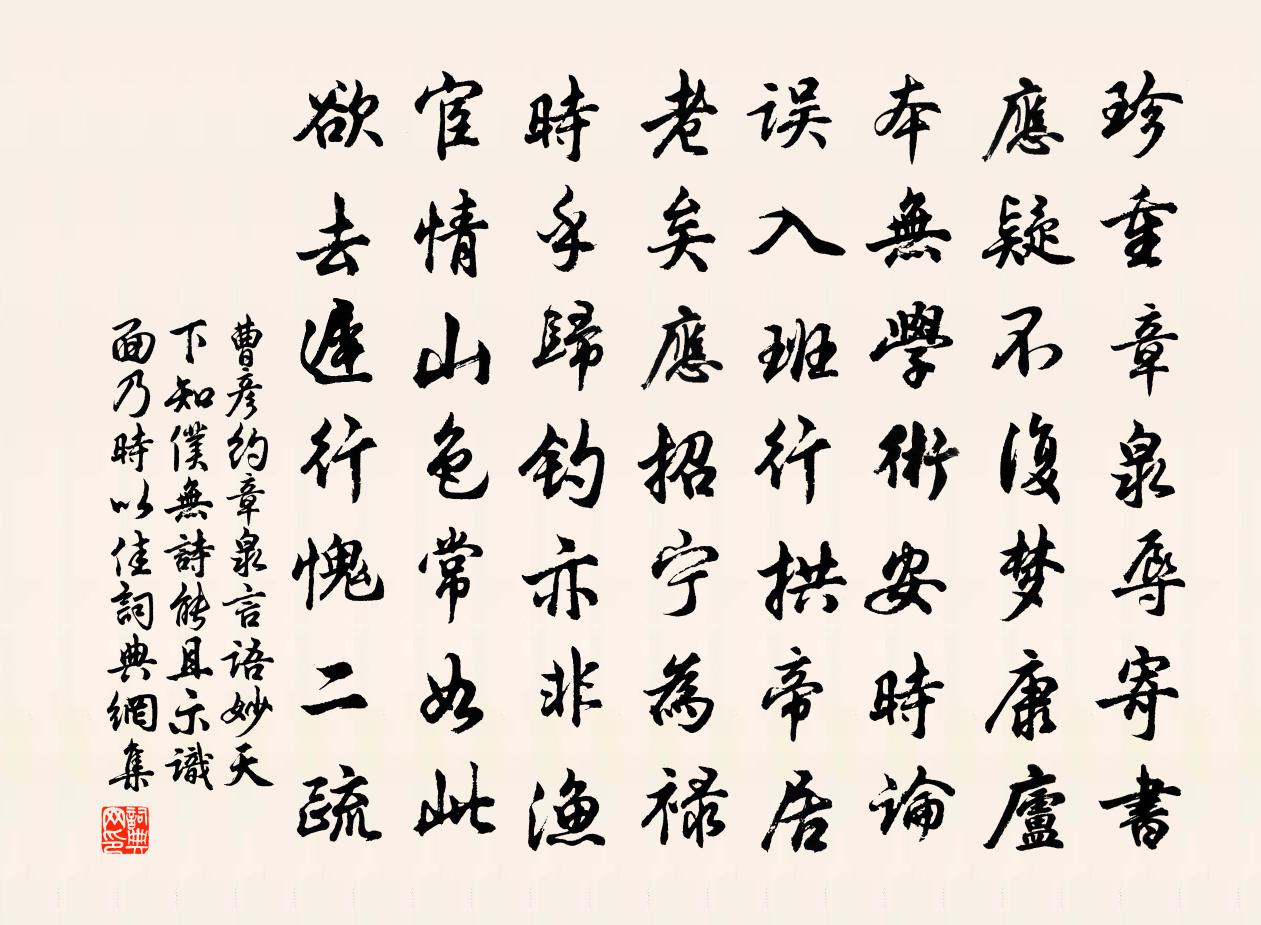 珍重章泉辱寄書
應疑不復梦康廬
本無學術安時論
误入班行拱帝居
老矣應招宁為禄
時乎歸釣亦非漁
宦情山色常如此
欲去遲行愧二疏
曹彦約章泉言語妙天
下知僕無詩能且示識
面乃時以佳詞典網集
詞典
网印